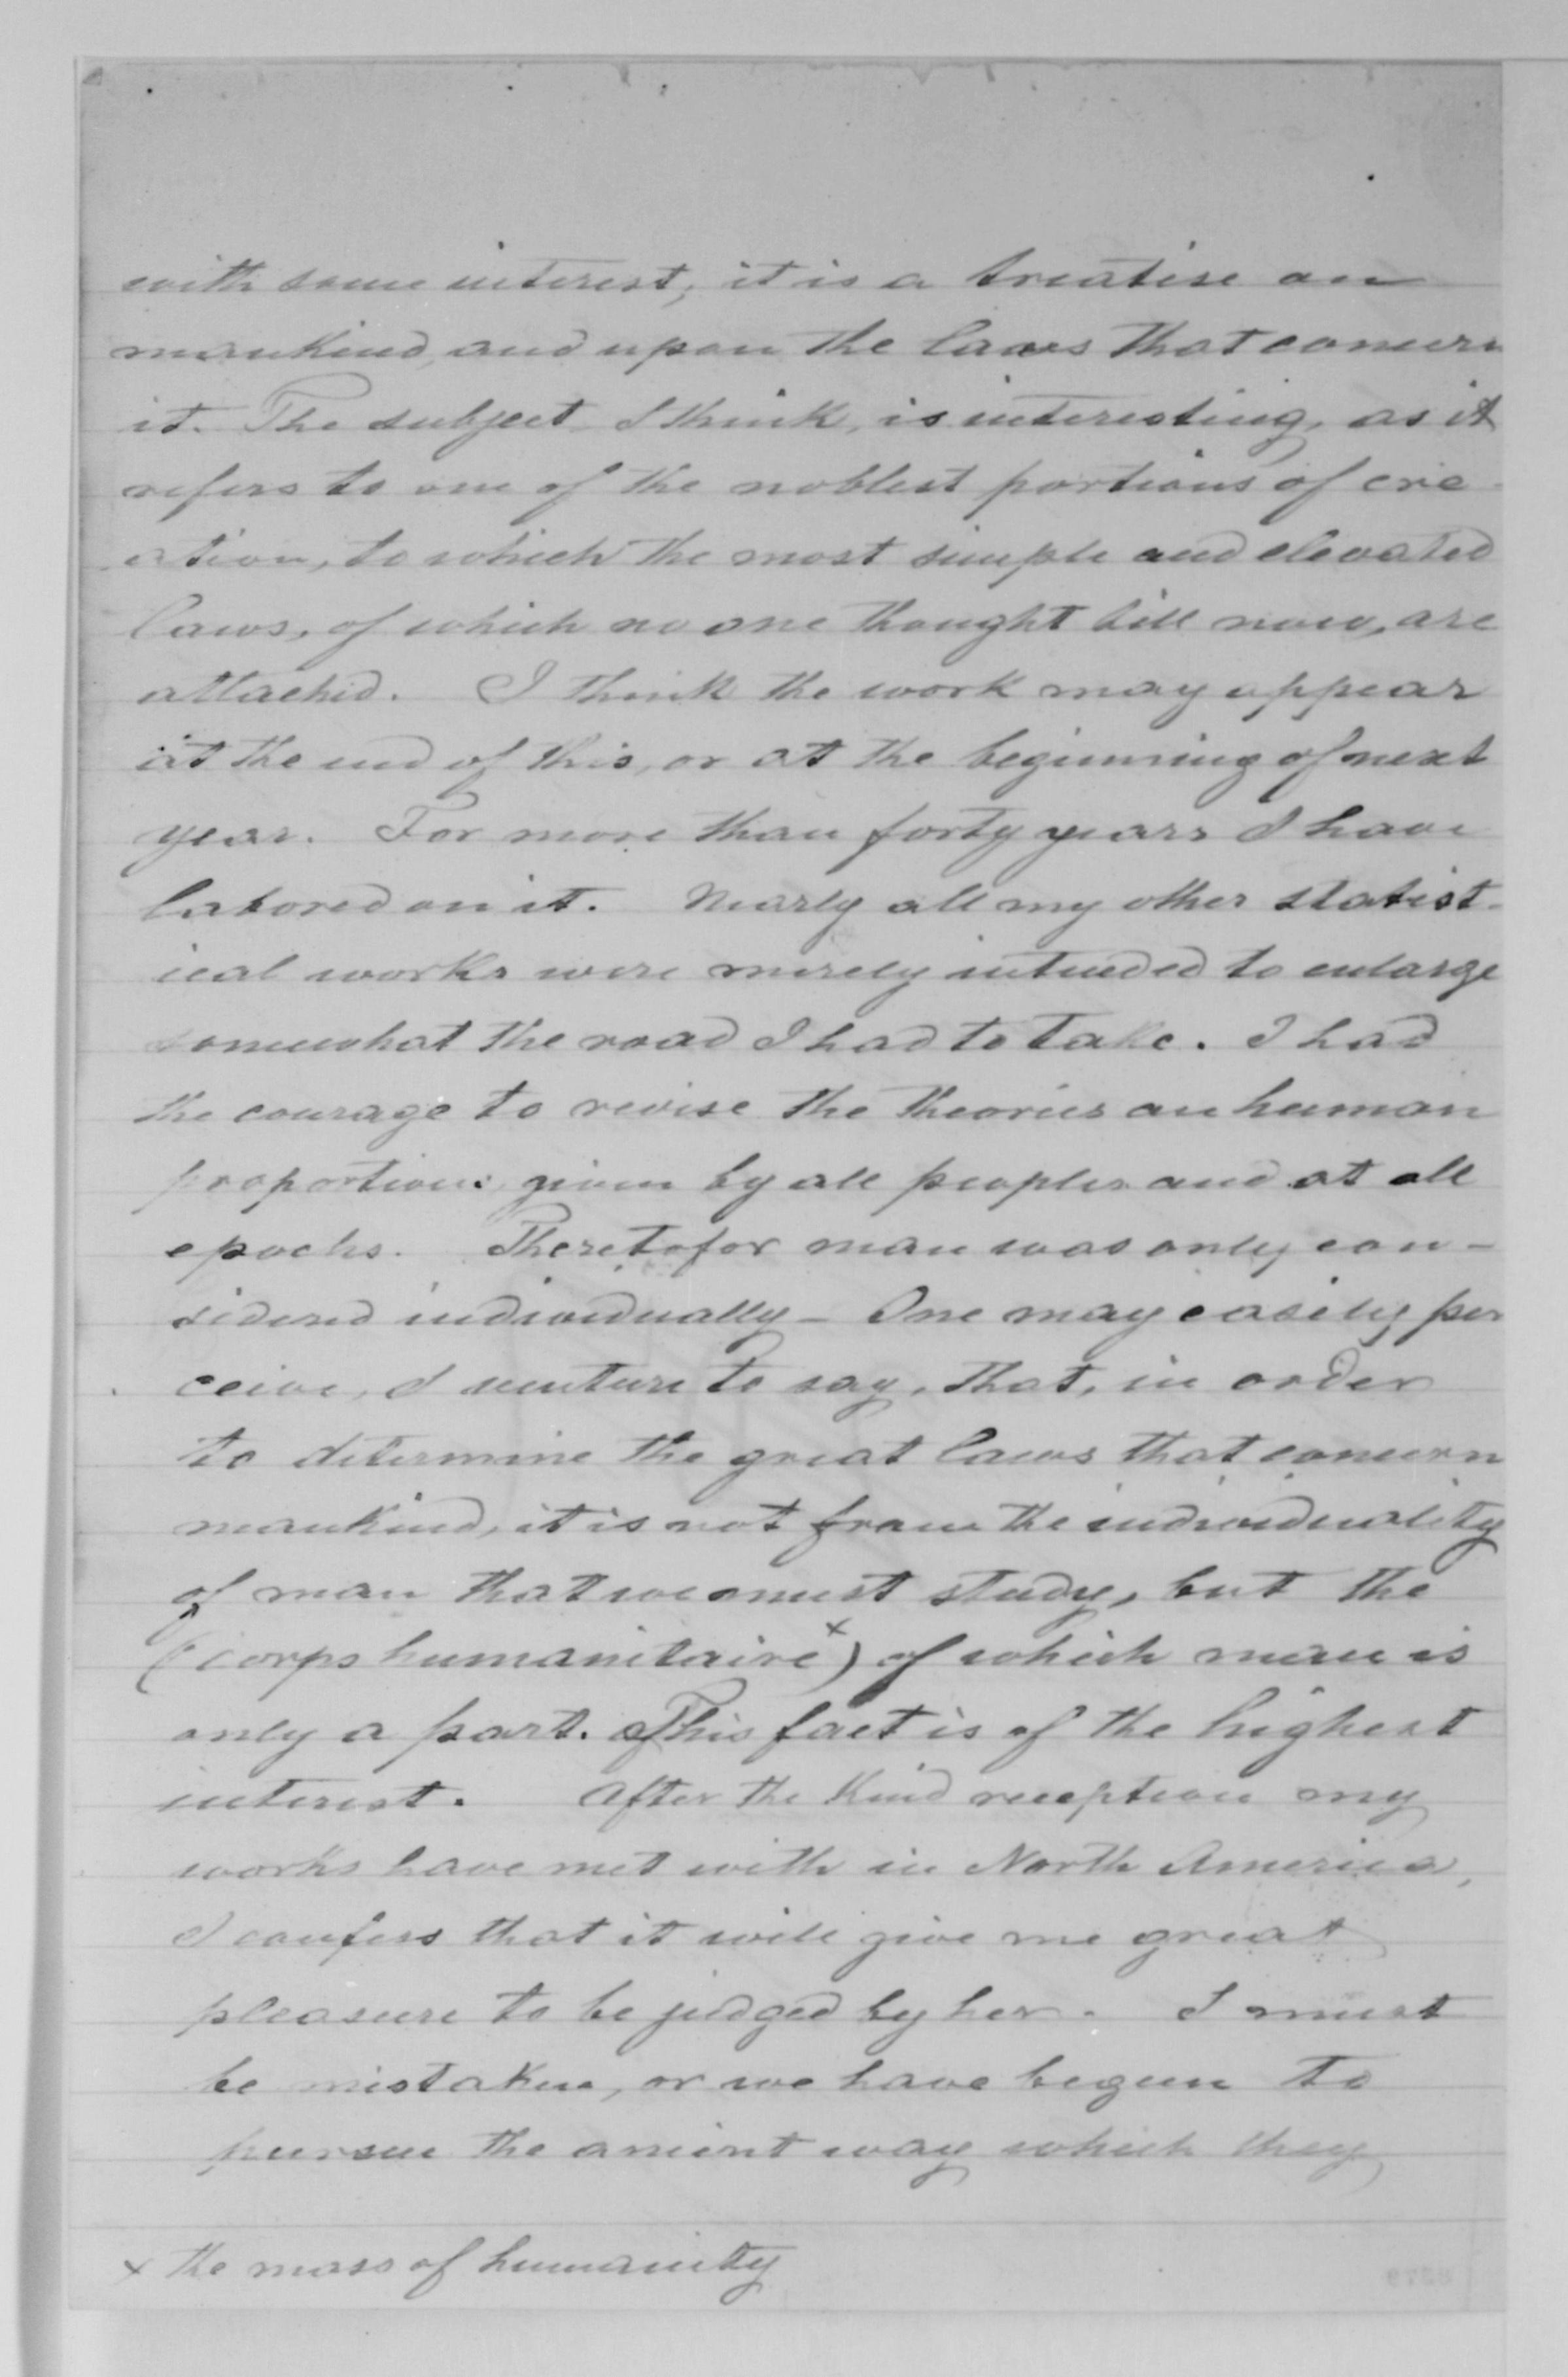 with some interest, it is a treatise on
mankind, and upon the laws that concern
it. The subject I think, is interesting, as it
refers to one of the noblest portions of cre
ation, to which the most simple and elevated
laws, of which no one thought till now, are
attached. I think the work may appear
at the end of this, or at the beginning of next
year. For more than forty years I have
labored on it. Nearly all my other statist-
ical works were merely intended to enlarge
somewhat the road I had to take. I had
the courage to revise the theories on human
proportions given by all peoples and at all
epochs. Theretofor man was only con-
sidered individually – One may easily per
ceive, I venture to say, that, in order
to determine the great laws that concern
mankind, it is not from the individuality
of man that we must study, but the
(corps humanitaire x) of which man is
only a part. This fact is of the highest
interest. After the kind reception my
works have met with in North America,
I confess that it will give me great
pleasure to be judged by her. I must
be mistaken, or we have begun to
pursue the ancient way which they
x the mass of humanity